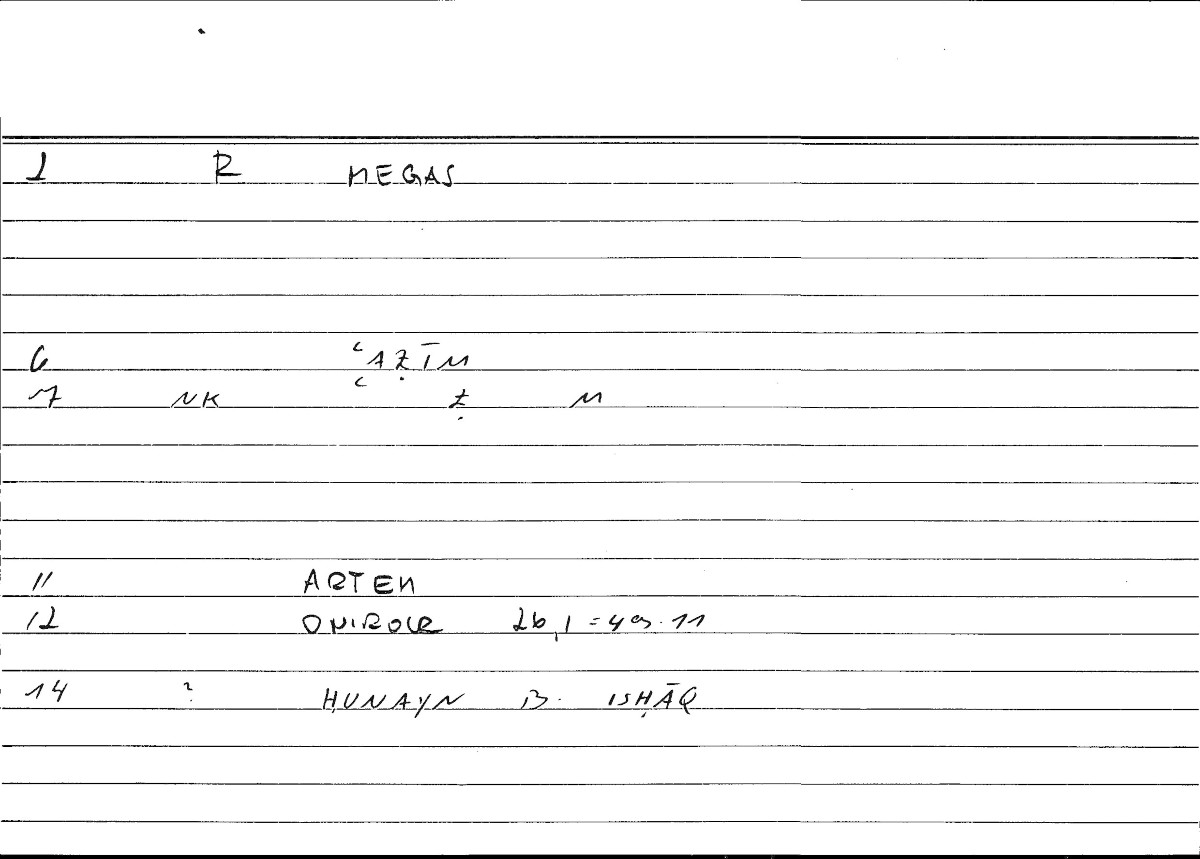 1 R MEGAS
6 ʿAẒĪM
7 NK ʿ Ẓ M
11 ARTEM
12 ONIROCR 26,1 = 49.11
14 ? ḤUNAYN B. ISḤĀQ